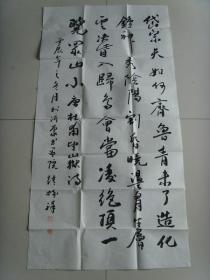 岱宗夫如何齊魯青未了造化
鍾神秀陰陽割昏曉盪胸生層
雲決眥入歸鳥會當凌絕頂一
覽眾山小唐杜甫望嶽詩
辰年之冬月於書畫院祥